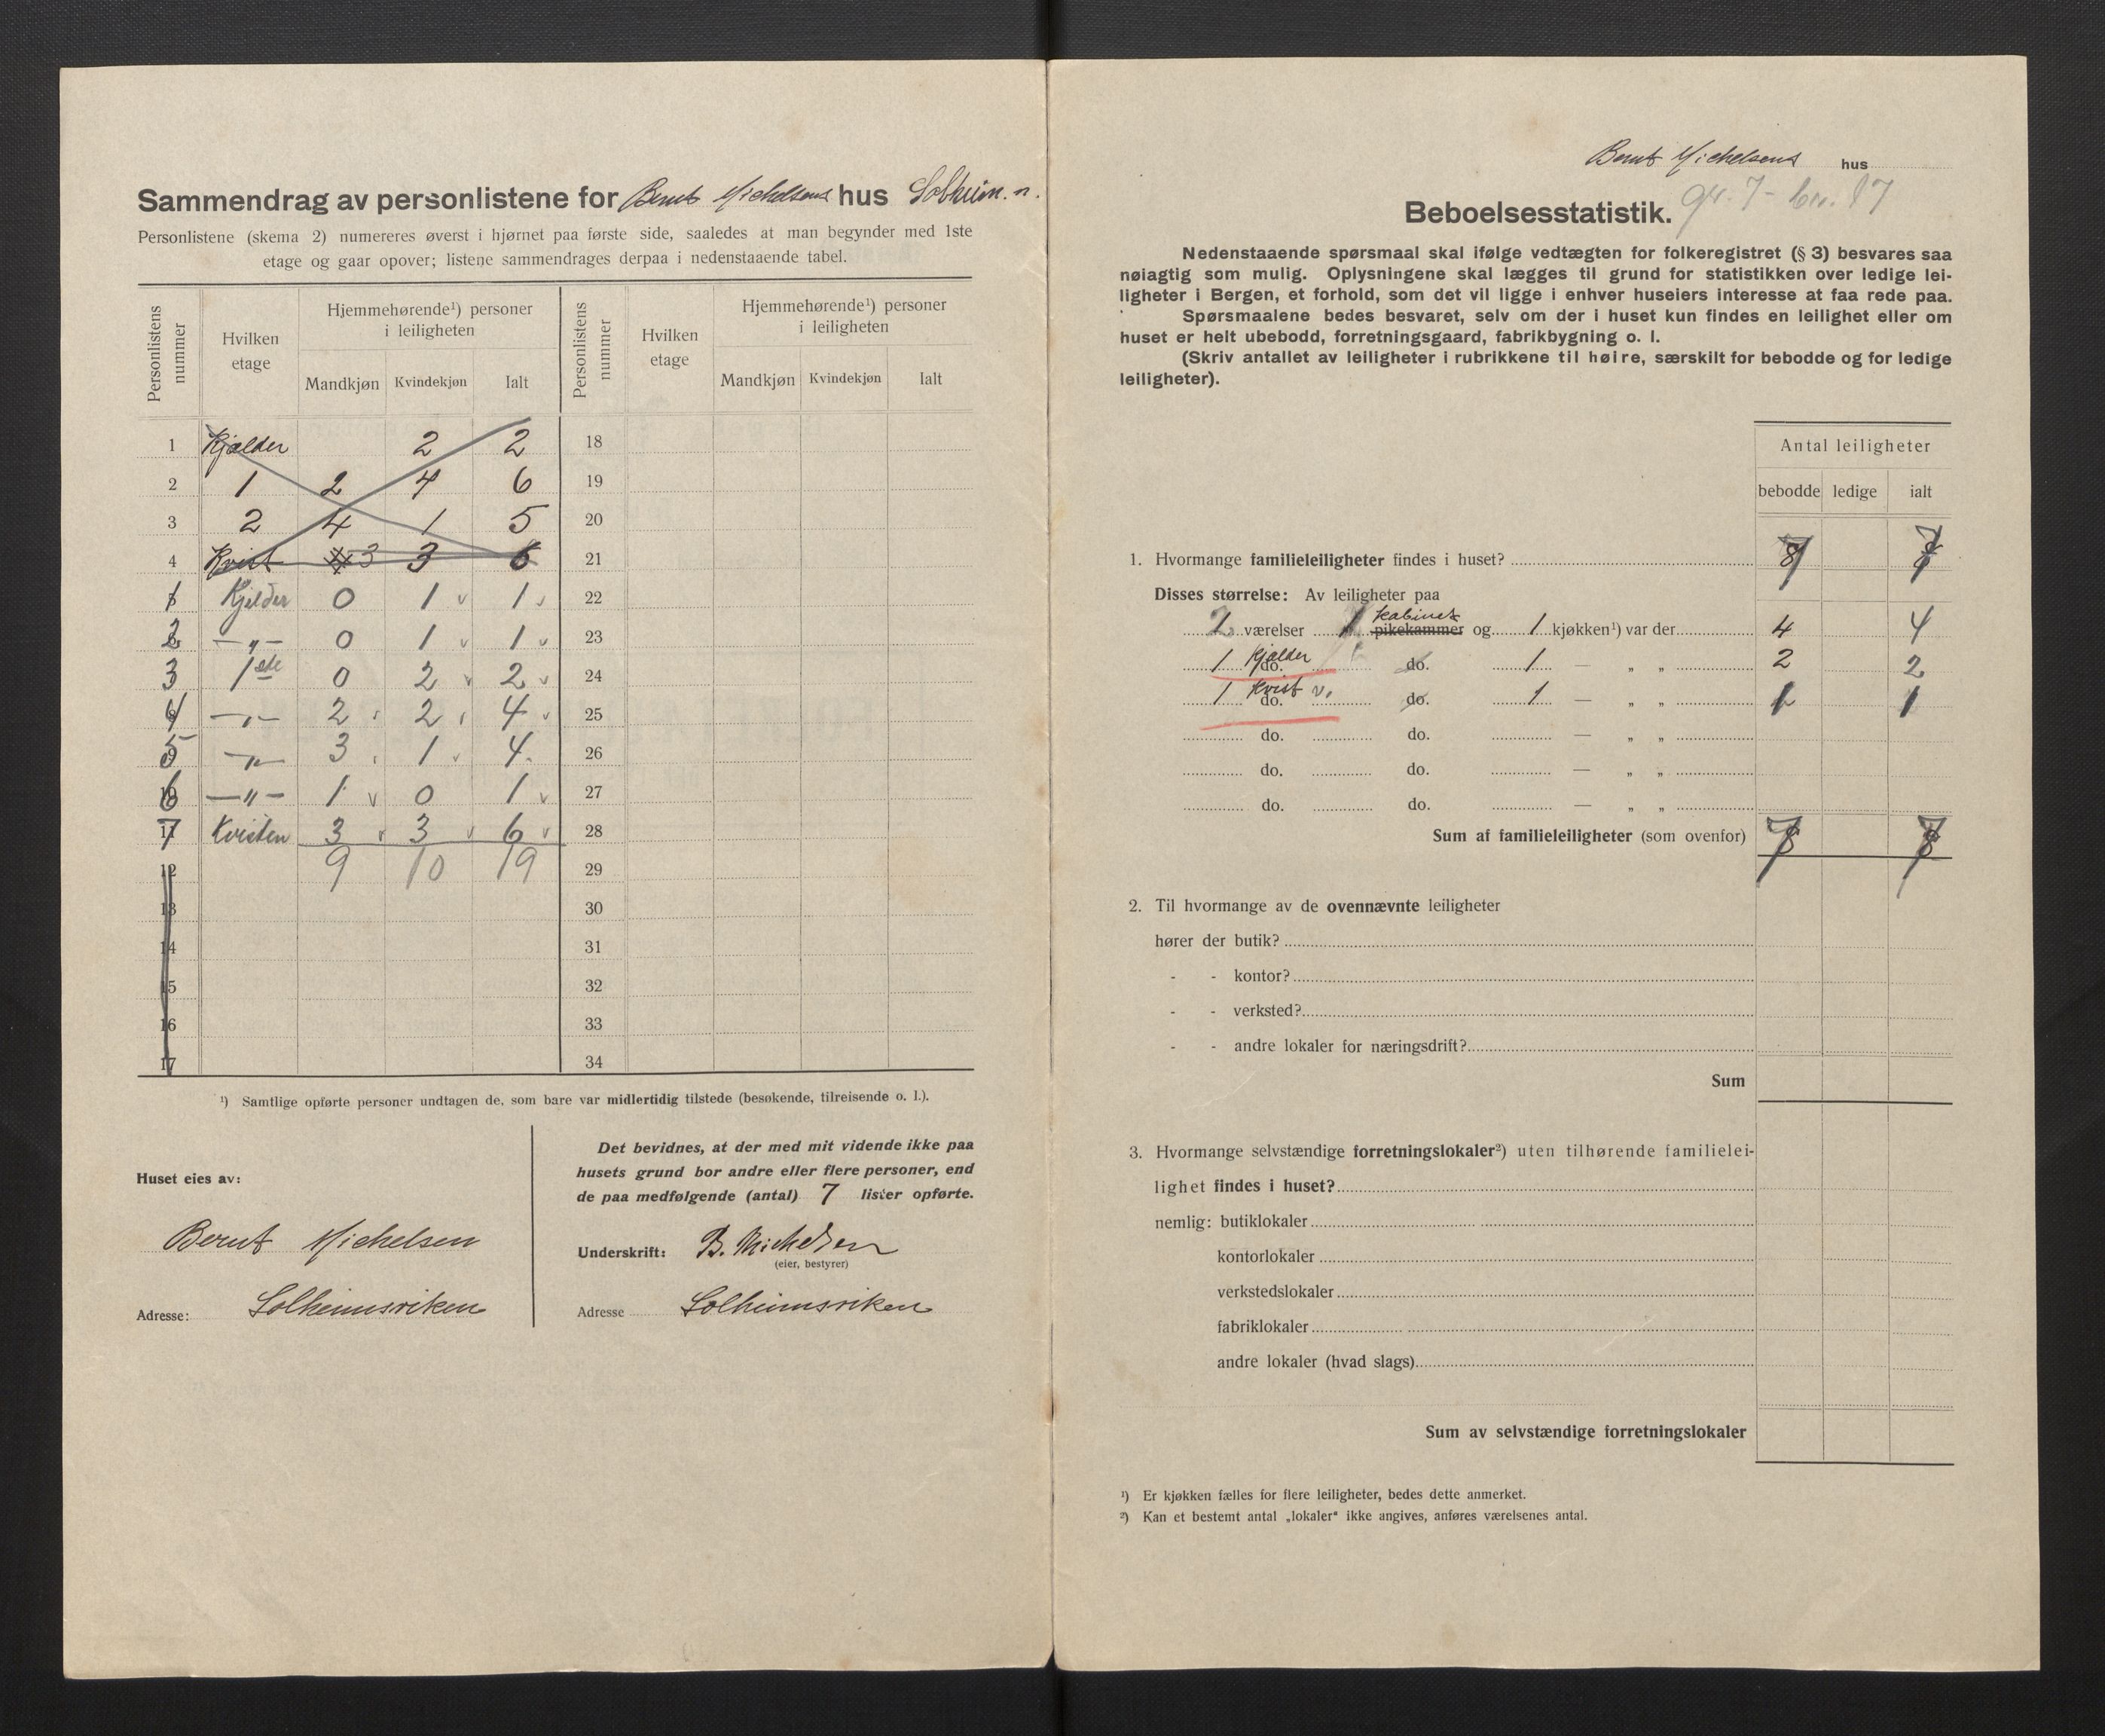 Sammendrag av personlistene for Bernt Michelsens hus Solheim. n.
Personlistene (skema 2) numereres øverst i hjørnet paa første side, saaledes at man begynder med 1ste
etage og gaar opover; listene sammendrages derpaa i nedenstaaende tabel.
Personlistens nummer | Hvilken etage | Hjemmehørende¹) personer i leiligheten | Personlistens nummer | Hvilken etage | Hjemmehørende¹) personer i leiligheten
Mandkjøn | Kvindekjøn | Ialt | Mandkjøn | Kvindekjøn | Ialt
1 Kjælder 2 2 18
2 1 2 4 6 19
3 2 4 1 5 20
4 Kvist 3 3 6 21
1 Kjelder 0 1 v 1 v 22
2 — „ — 0 1 v 1 v 23
3 1ste 0 2 v 2 v 24
4 — „ — 2 2 4 v 25
5 — „ — 3 1 v 4 26
6 — „ — 1 v 0 1 v 27
7 Kvisten 3 v 3 v 6 v 28
12 9 10 19 29
13 30
14 31
15 32
16 33
17 34
¹) Samtlige opførte personer undtagen de, som bare var midlertidig tilstede (besøkende, tilreisende o. l.).
Huset eies av:
Bernt Michelsen
Adresse: Solheimsviken
Det bevidnes, at der med mit vidende ikke paa
husets grund bor andre eller flere personer, end
de paa medfølgende (antal) 7 lister opførte.
Underskrift: B. Michelsen
(eier, bestyrer)
Adresse Solheimsviken
Bernt Michelsens hus
Beboelsesstatistik. gr. 7 - br. 17
Nedenstaaende spørsmaal skal ifølge vedtægten for folkeregistret (§ 3) besvares saa
nøiagtig som mulig. Oplysningene skal lægges til grund for statistikken over ledige lei-
ligheter i Bergen, et forhold, som det vil ligge i enhver huseiers interesse at faa rede paa.
Spørsmaalene bedes besvaret, selv om der i huset kun findes en leilighet eller om
huset er helt ubebodd, forretningsgaard, fabrikbygning o. l.
(Skriv antallet av leiligheter i rubrikkene til høire, særskilt for bebodde og for ledige
leiligheter).
Antal leiligheter
bebodde | ledige | ialt
1. Hvormange familieleiligheter findes i huset? 7 7
Disses størrelse: Av leiligheter paa
kabinet
værelser 1 pikekammer og 1 kjøkken¹) var der 4 4
1 Kjælder do. do. 1 — „ „ 2 2
1 Kvist v. do. do. 1 — „ „ 1 1
do. do. — „ „
do. do. — „ „
do. do. — „ „
Sum af familieleiligheter (som ovenfor) 7 7
2. Til hvormange av de ovennævnte leiligheter
hører der butik?
- - kontor?
- - verksted?
- - andre lokaler for næringsdrift?
Sum
3. Hvormange selvstændige forretningslokaler²) uten tilhørende familielei-
lighet findes i huset?
nemlig: butiklokaler
kontorlokaler
verkstedslokaler
fabriklokaler
andre lokaler (hvad slags)
Sum av selvstændige forretningslokaler
¹) Er kjøkken fælles for flere leiligheter, bedes dette anmerket.
²) Kan et bestemt antal „lokaler“ ikke angives, anføres værelsenes antal.